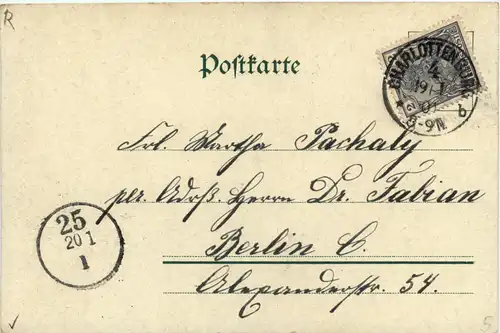 R
Postkarte
CHARLOTTENBURG
4
19/1
01
8-9N
b
Frl. Martha Pachaly
per. Adrß. Herrn Dr. Fabian
Berlin C.
Alexanderstr. 54.
25
20 1
1